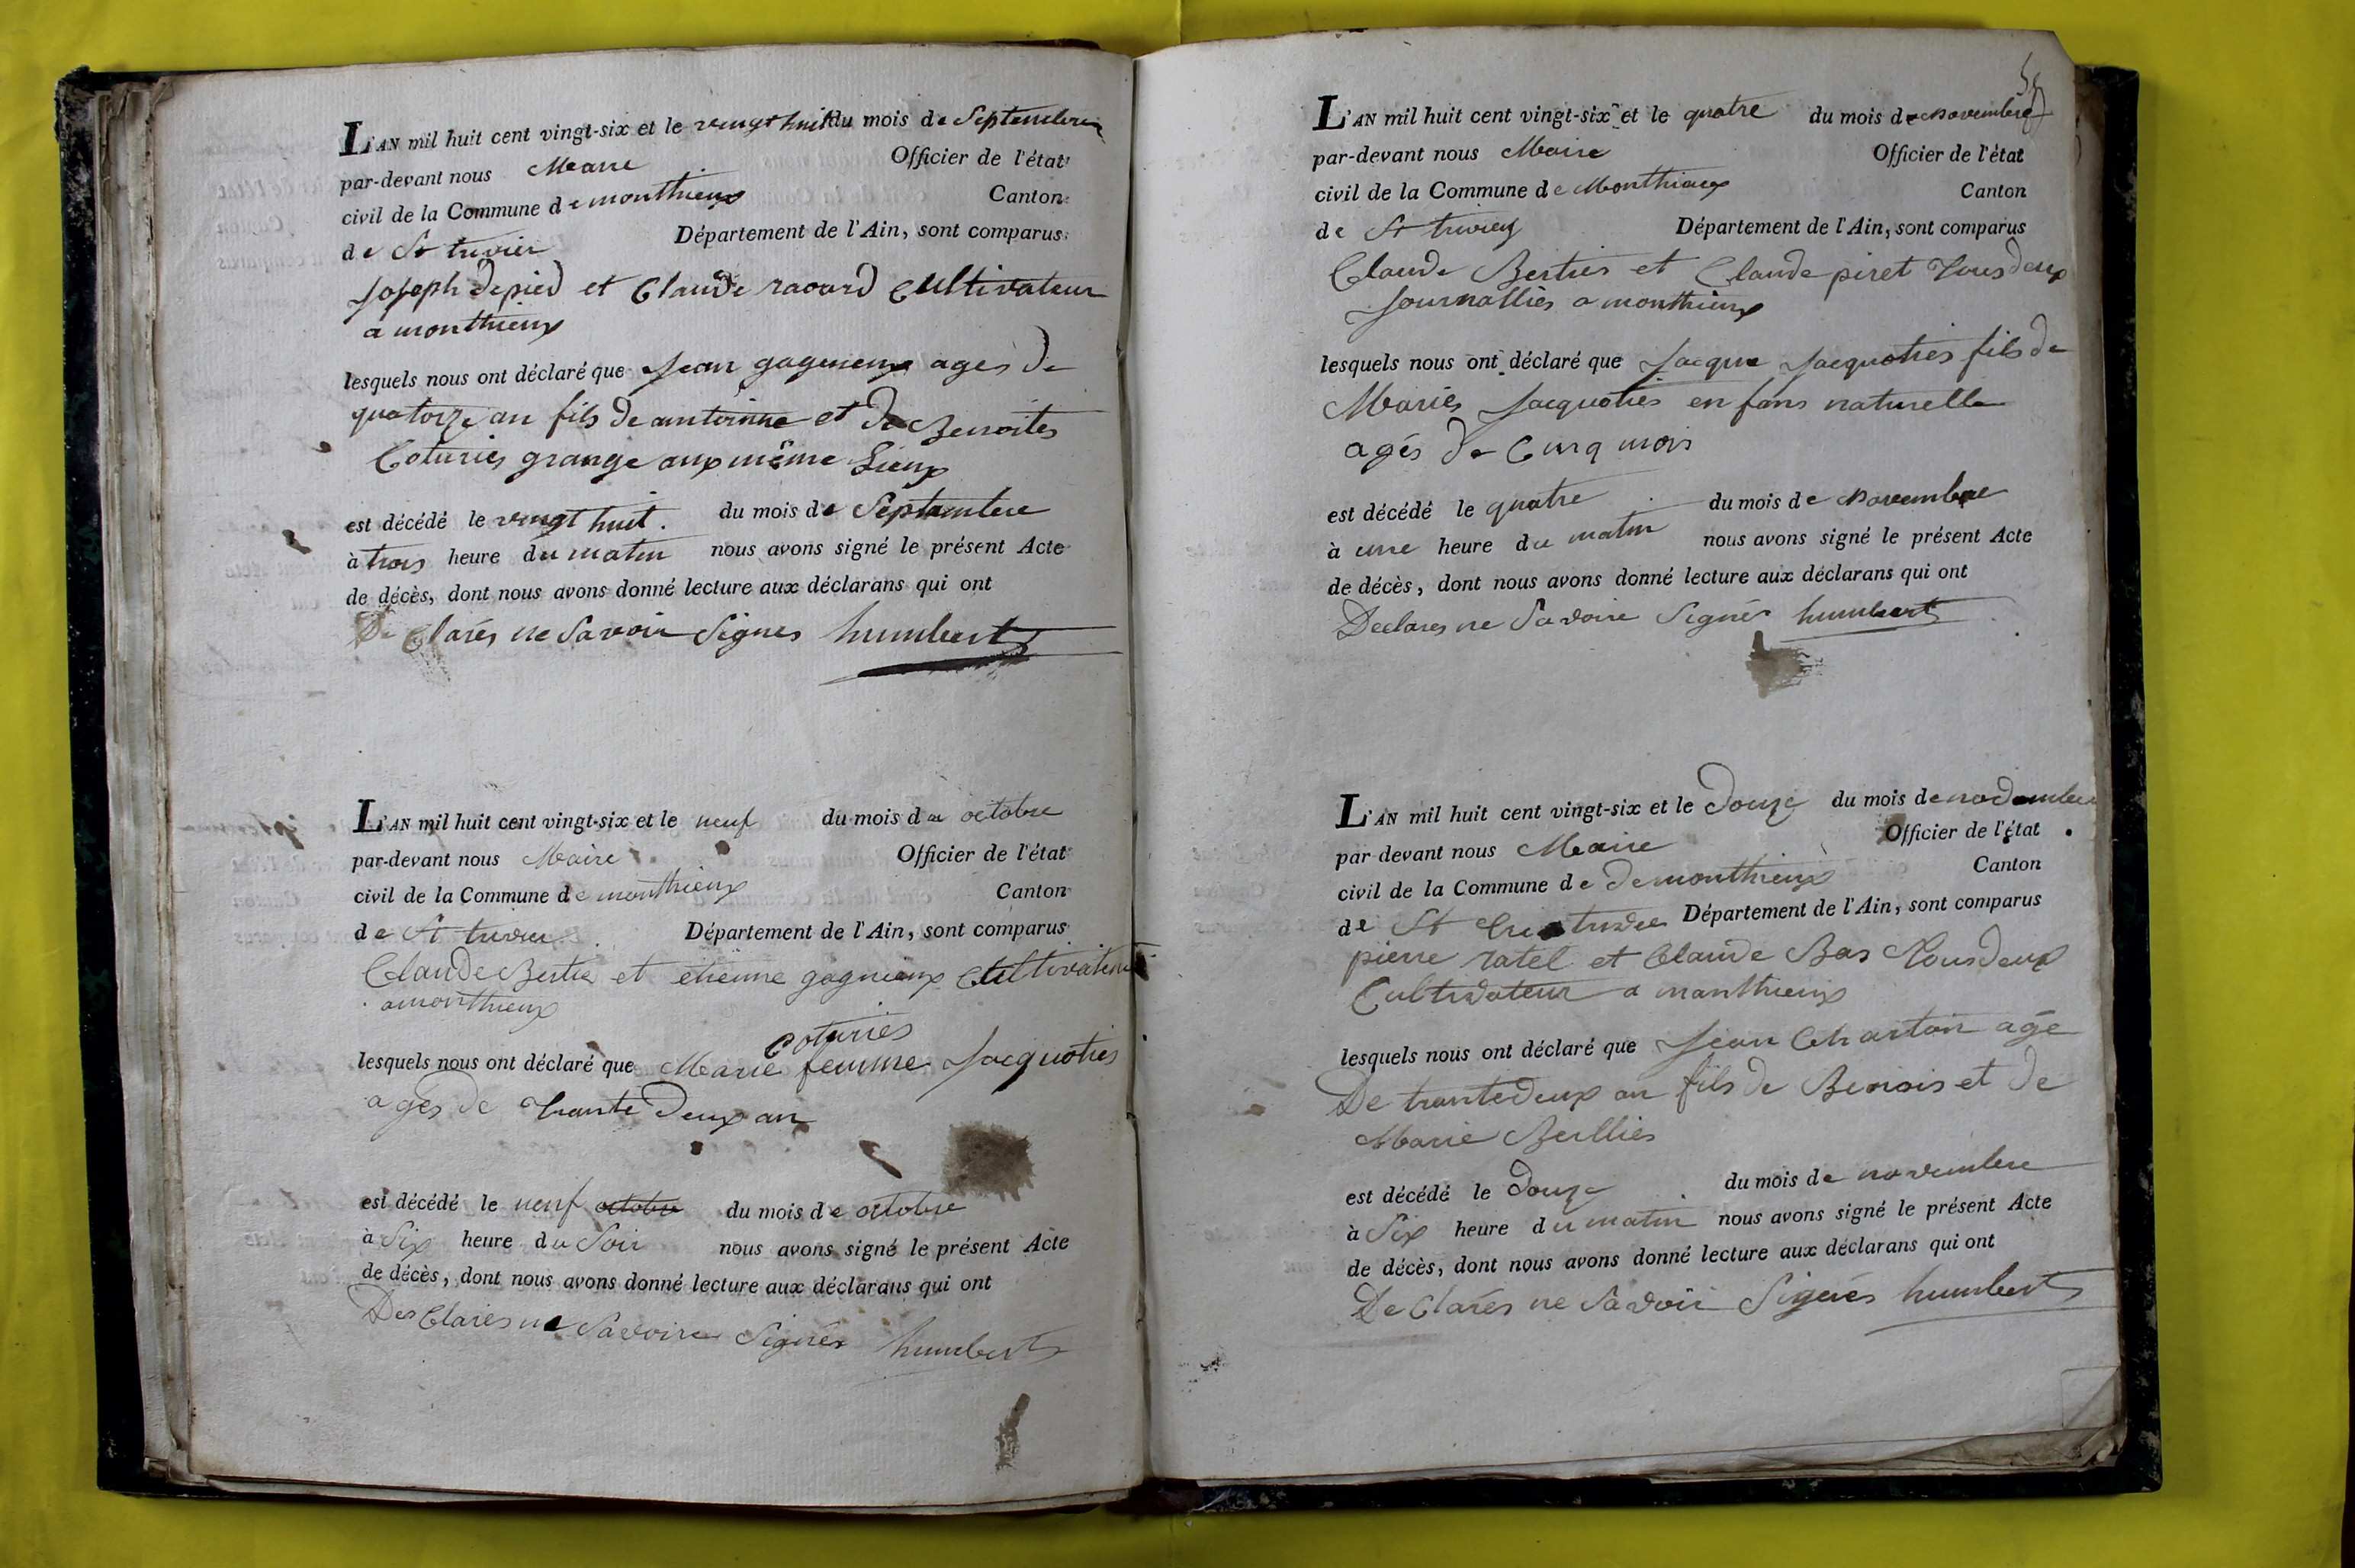 L'AN mil huit cent vingt-six et le vingt huit du mois de Septembre
par-devant nous Maire Officier de l'état
civil de la Commune de monthieux Canton
de St trivier Département de l'Ain, sont comparus
Joseph depied et Claude raoard Cultivateur
a monthieux
lesquels nous ont déclaré que Jean gagnieux agés de
quatorze an fils de antoinne et de Benoites
Coturiés grange aux même Lieux
est décédé le vingt huit du mois de Septembre
à trois heure du matin nous avons signé le présent Acte
de décès, dont nous avons donné lecture aux déclarans qui ont
De Clarés ne Savoir Signes humbert
L'AN mil huit cent vingt-six et le neuf du mois de octobre
par-devant nous Maire Officier de l'état
civil de la Commune de monthieux Canton
de St trivier Département de l'Ain, sont comparus
Claude Bertie et etienne gagnieux Cultivateur
a monthieux
Coturiés
lesquels nous ont déclaré que Marie femme Jacquotiés
agés de trante deux an
est décédé le neuf octobre du mois de octobre
à Six heure du Soir nous avons signé le présent Acte
de décès, dont nous avons donné lecture aux déclarans qui ont
Des Clarés ne Savoire Signés humbert
L'AN mil huit cent vingt-six et le quatre du mois de novembre
par-devant nous Maire Officier de l'état
civil de la Commune de Monthieux Canton
de St trivier Département de l'Ain, sont comparus
Claude Bertiés et Claude piret Tous deux
Journalliés a monthieux
lesquels nous ont déclaré que Jacque Jacquotiés fils de
Mariés Jacquotiés enfans naturelle
agés de Cinq mois
est décédé le quatre du mois de novembre
à une heure du matin nous avons signé le présent Acte
de décès, dont nous avons donné lecture aux déclarans qui ont
Declares ne Savoire Signés humbert
L'AN mil huit cent vingt-six et le Douze du mois de novembre
par-devant nous Maire Officier de l'état
civil de la Commune de demonthieux Canton
de St Département de l'Ain, sont comparus
pierre ratel et Claude Bas Tous deux
Cultivateur a monthieux
lesquels nous ont déclaré que Jean Charton age
De trante deux an fils de Benois et de
Marie Berlliés
est décédé le Douze du mois de novembre
à Six heure du matin nous avons signé le présent Acte
de décès, dont nous avons donné lecture aux déclarans qui ont
De Clarés ne Savoir Signés humbert